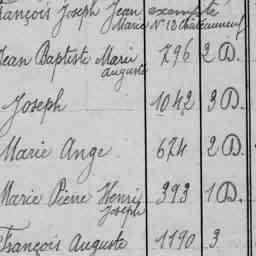 François Joseph Jean exempté
Marie N° 13 Chateauneuf
Jean Baptiste Marie 796 2 D.
auguste
Joseph 1042 3 D.
Marie Ange 674 2 D.
Marie Pierre Henri 393 1 D.
Joseph
François Auguste 1190 3